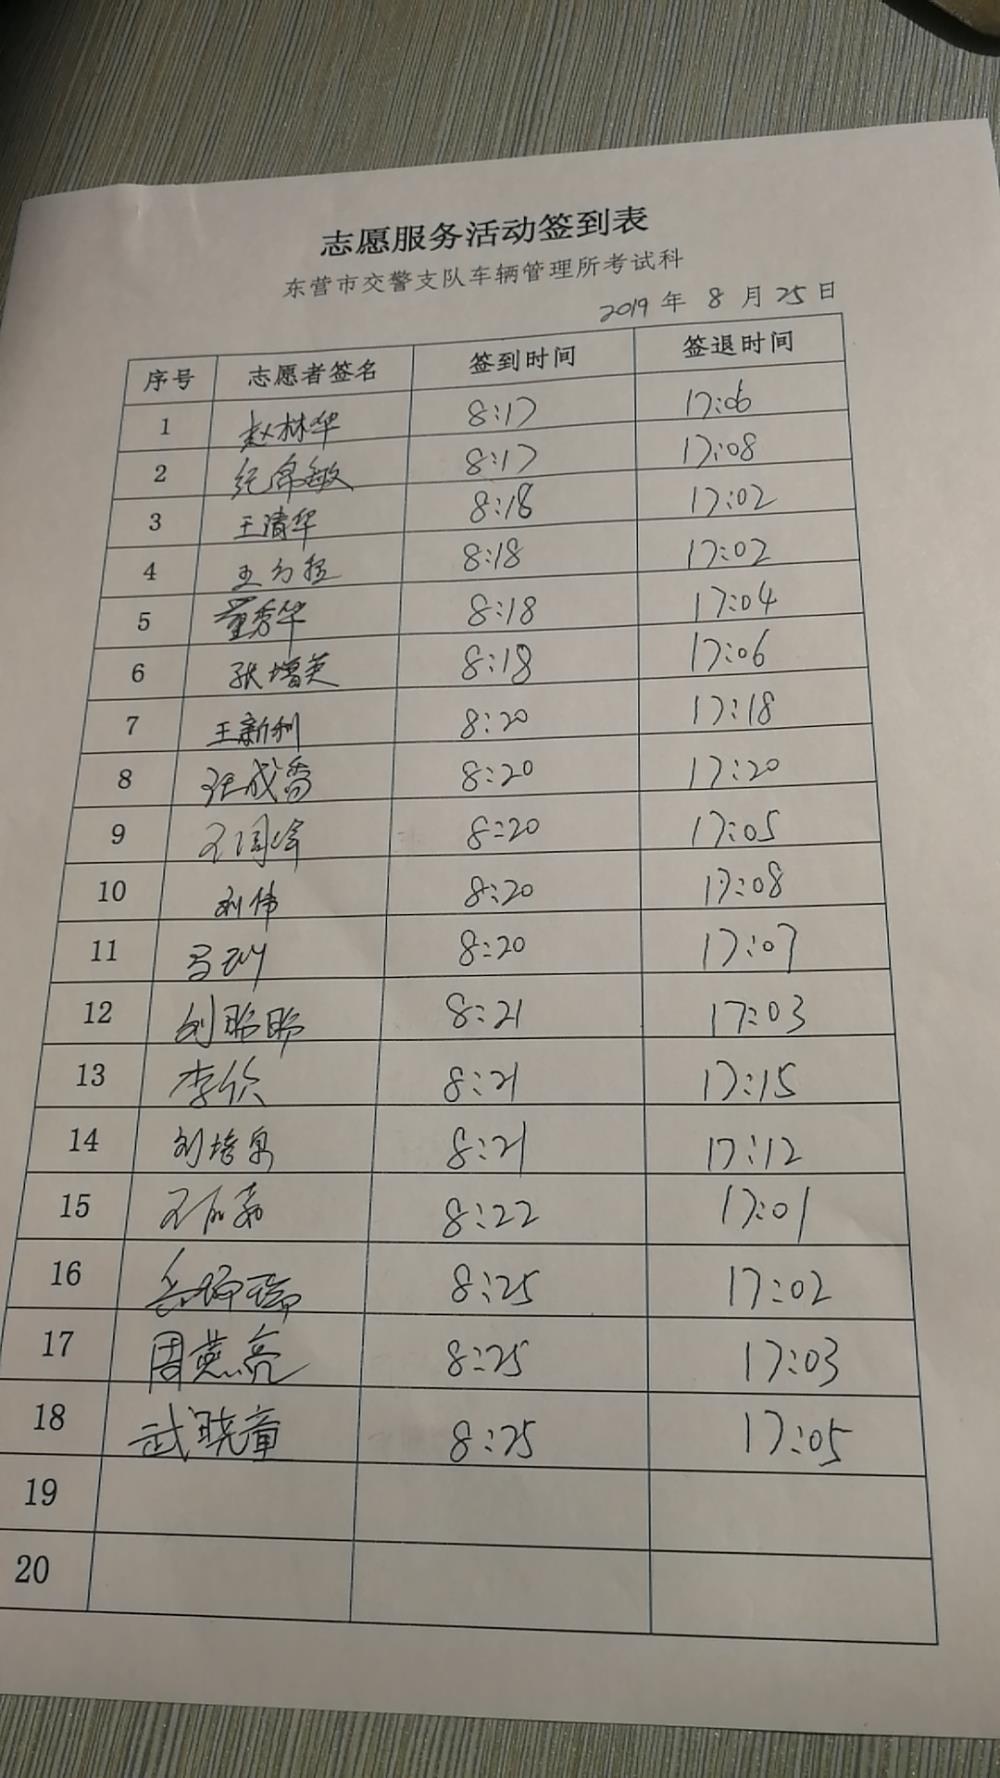 志愿服务活动签到表
东营市交警支队车辆管理所考试科
2019 年 8 月 25 日
序号 志愿者签名 签到时间 签退时间
1 赵林华 8:17 17:06
2 8:17 17:08
3 王清华 8:18 17:02
4 8:18 17:02
5 董秀华 8:18 17:04
6 张增英 8:18 17:06
7 王新利 8:20 17:18
8 张成香 8:20 17:20
9 8:20 17:05
10 刘伟 8:20 17:08
11 8:20 17:07
12 8:21 17:03
13 8:21 17:15
14 8:21 17:12
15 8:22 17:01
16 8:25 17:02
17 周燕亮 8:25 17:03
18 武晓童 8:25 17:05
19
20